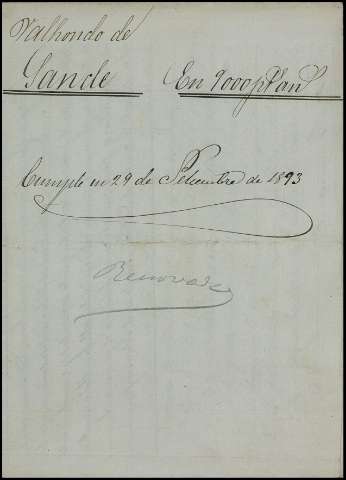 Valhondo de
Sande En 9000 pts an
Cumple en 29 de Setiembre de 1893
Renovado